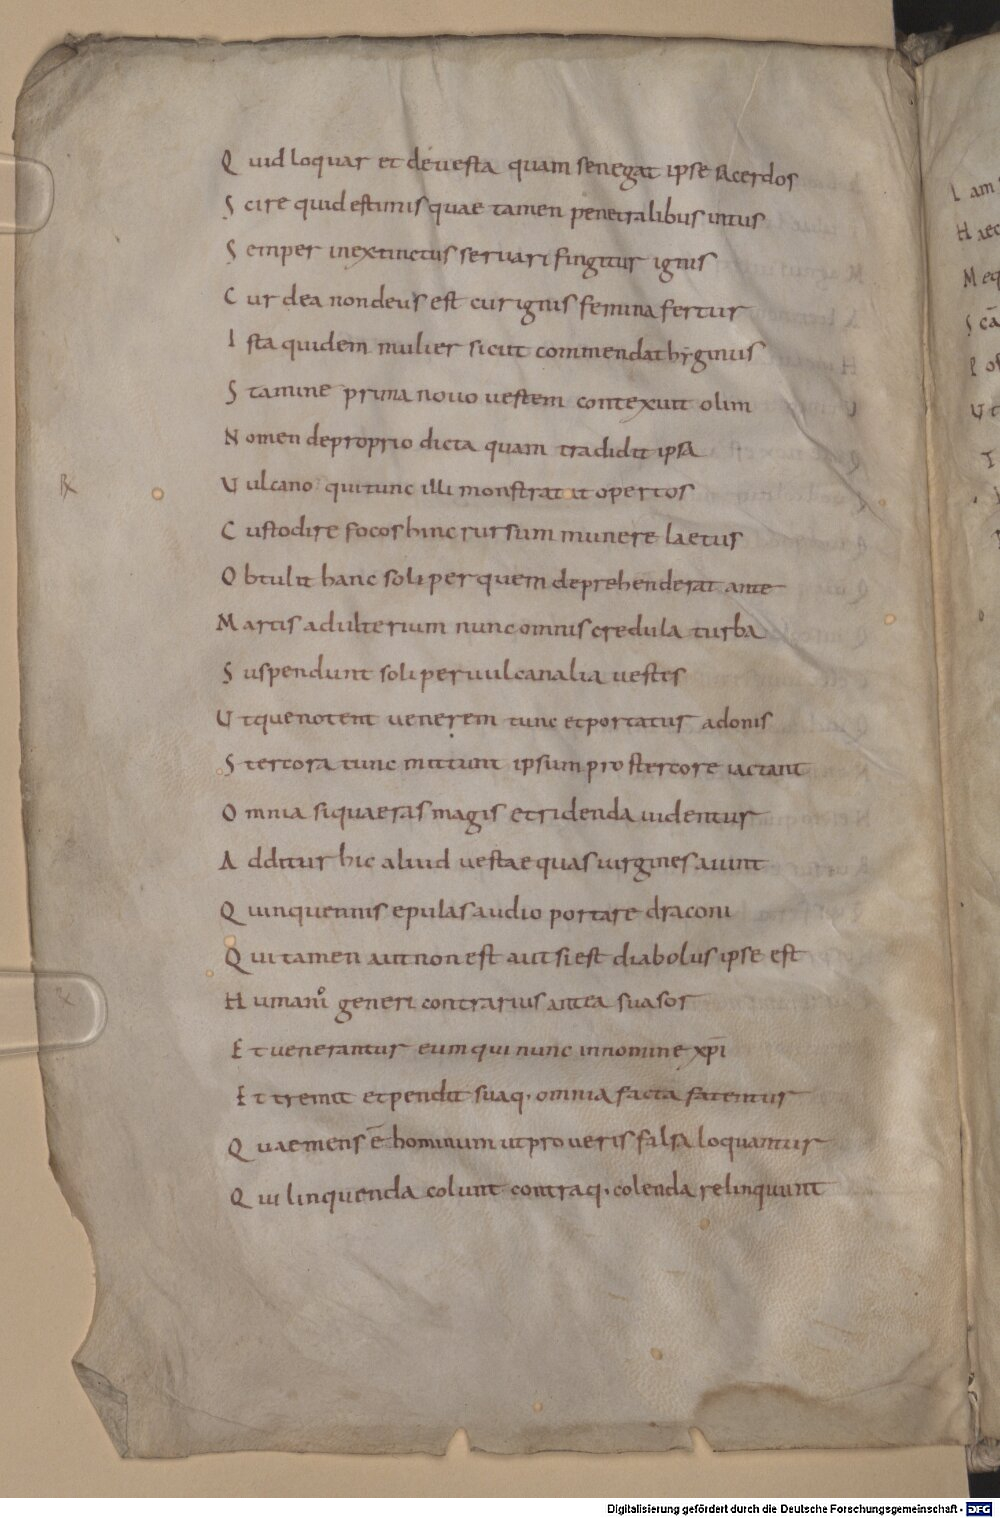 Quid loquar et de uesta quam se negat ipse sacerdos
Scire quid est imis quae tamen penetralibus intus
Semper inextinctus seruari fingitur ignis
Cur dea non deus est cur ignis femina fertur
Ista quidem mulier sicut commendat hyginus
Stamine prima nouo uestem contexuit olim
Nomen de proprio dicta quam tradidit ipsa
Vulcano qui tunc illi monstrat ut opertos
Custodire focos hinc rursum munere laetus
Obtulit hanc soli per quem deprehenderat ante
Martis adulterium nunc omnis credula turba
Suspendunt soli per uulcanalia uestes
Vtque notent uenerem tunc et portatur adonis
Stercora tunc mittunt ipsum pro stercore iactant
Omnia si quaeras magis et ridenda uidentur
Additur hic aliud uestae quas uirgines aiunt
Quinquennis epulas audio portare draconi
Qui tamen aut non est aut si est diabolus ipse est
Humano generi contrarius antea suasor
Et uenerantur eum qui nunc in nomine xp̄i
Et tremit et pendit suaq· omnia facta fatentur
Quae mens ē hominum ut pro ueris falsa loquantur
Qui linquenda colunt contraq· colenda relinquunt
I am
H aec
M eq
S cā
P os
V t
Digitalisierung gefördert durch die Deutsche Forschungsgemeinschaft - DFG